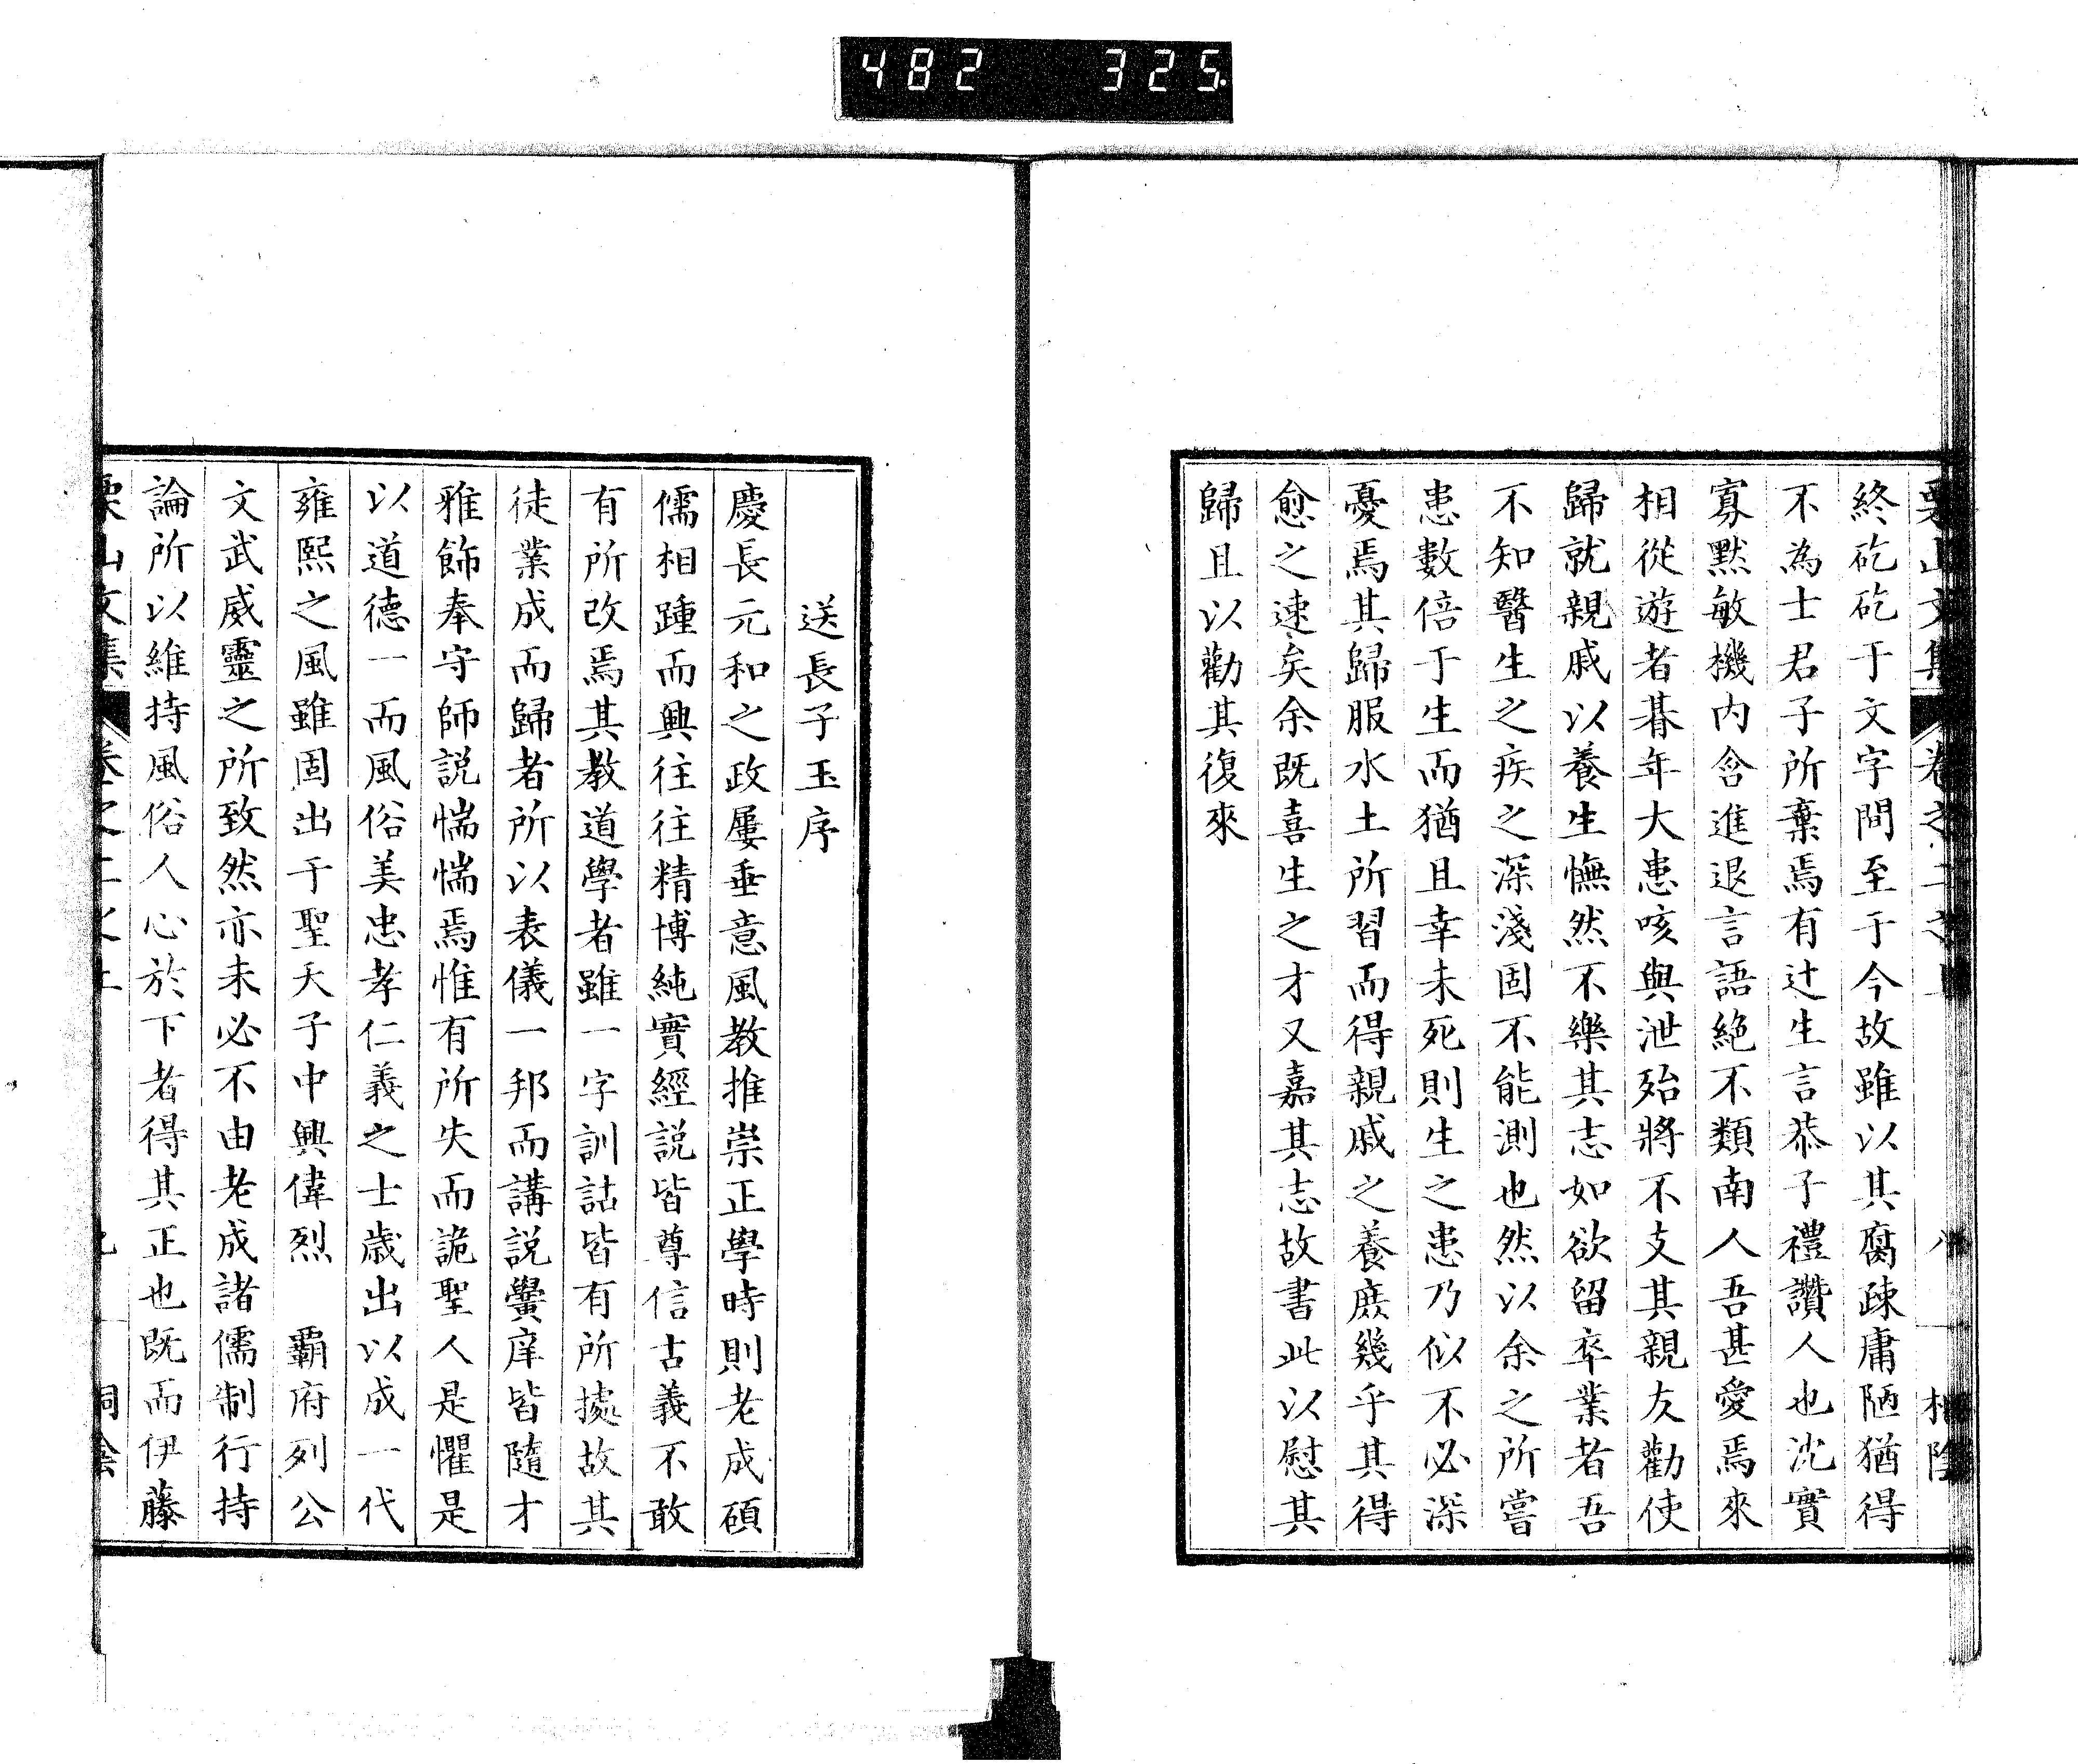 482 325.
終矻矻于文字間至于今故雖以其腐疎庸陋猶得
不為士君子所棄焉有辻生言恭子禮讚人也沈實
寡默敏機內含進退言語絕不類南人吾甚愛焉來
相從遊者朞年大患咳與泄殆將不支其親友勸使
歸就親戚以養生憮然不樂其志如欲留卒業者吾
不知醫生之疾之深淺固不能測也然以余之所嘗
患數倍于生而猶且幸未死則生之患乃似不必深
憂焉其歸服水土所習而得親戚之養庶幾乎其得
愈之速矣余既喜生之才又嘉其志故書此以慰其
歸且以勸其復來
送長子玉序
慶長元和之政屢垂意風教推崇正學時則老成碩
儒相踵而興往往精博純實經説皆尊信古義不敢
有所改焉其教道學者雖一字訓詁皆有所據故其
徒業成而歸者所以表儀一邦而講説黌庠皆隨才
雅飾奉守師説惴惴焉惟有所失而詭聖人是懼是
以道德一而風俗美忠孝仁義之士歲出以成一代
雍熙之風雖固出于聖天子中興偉烈 覇府列公
文武威靈之所致然亦未必不由老成諸儒制行持
論所以維持風俗人心於下者得其正也既而伊藤